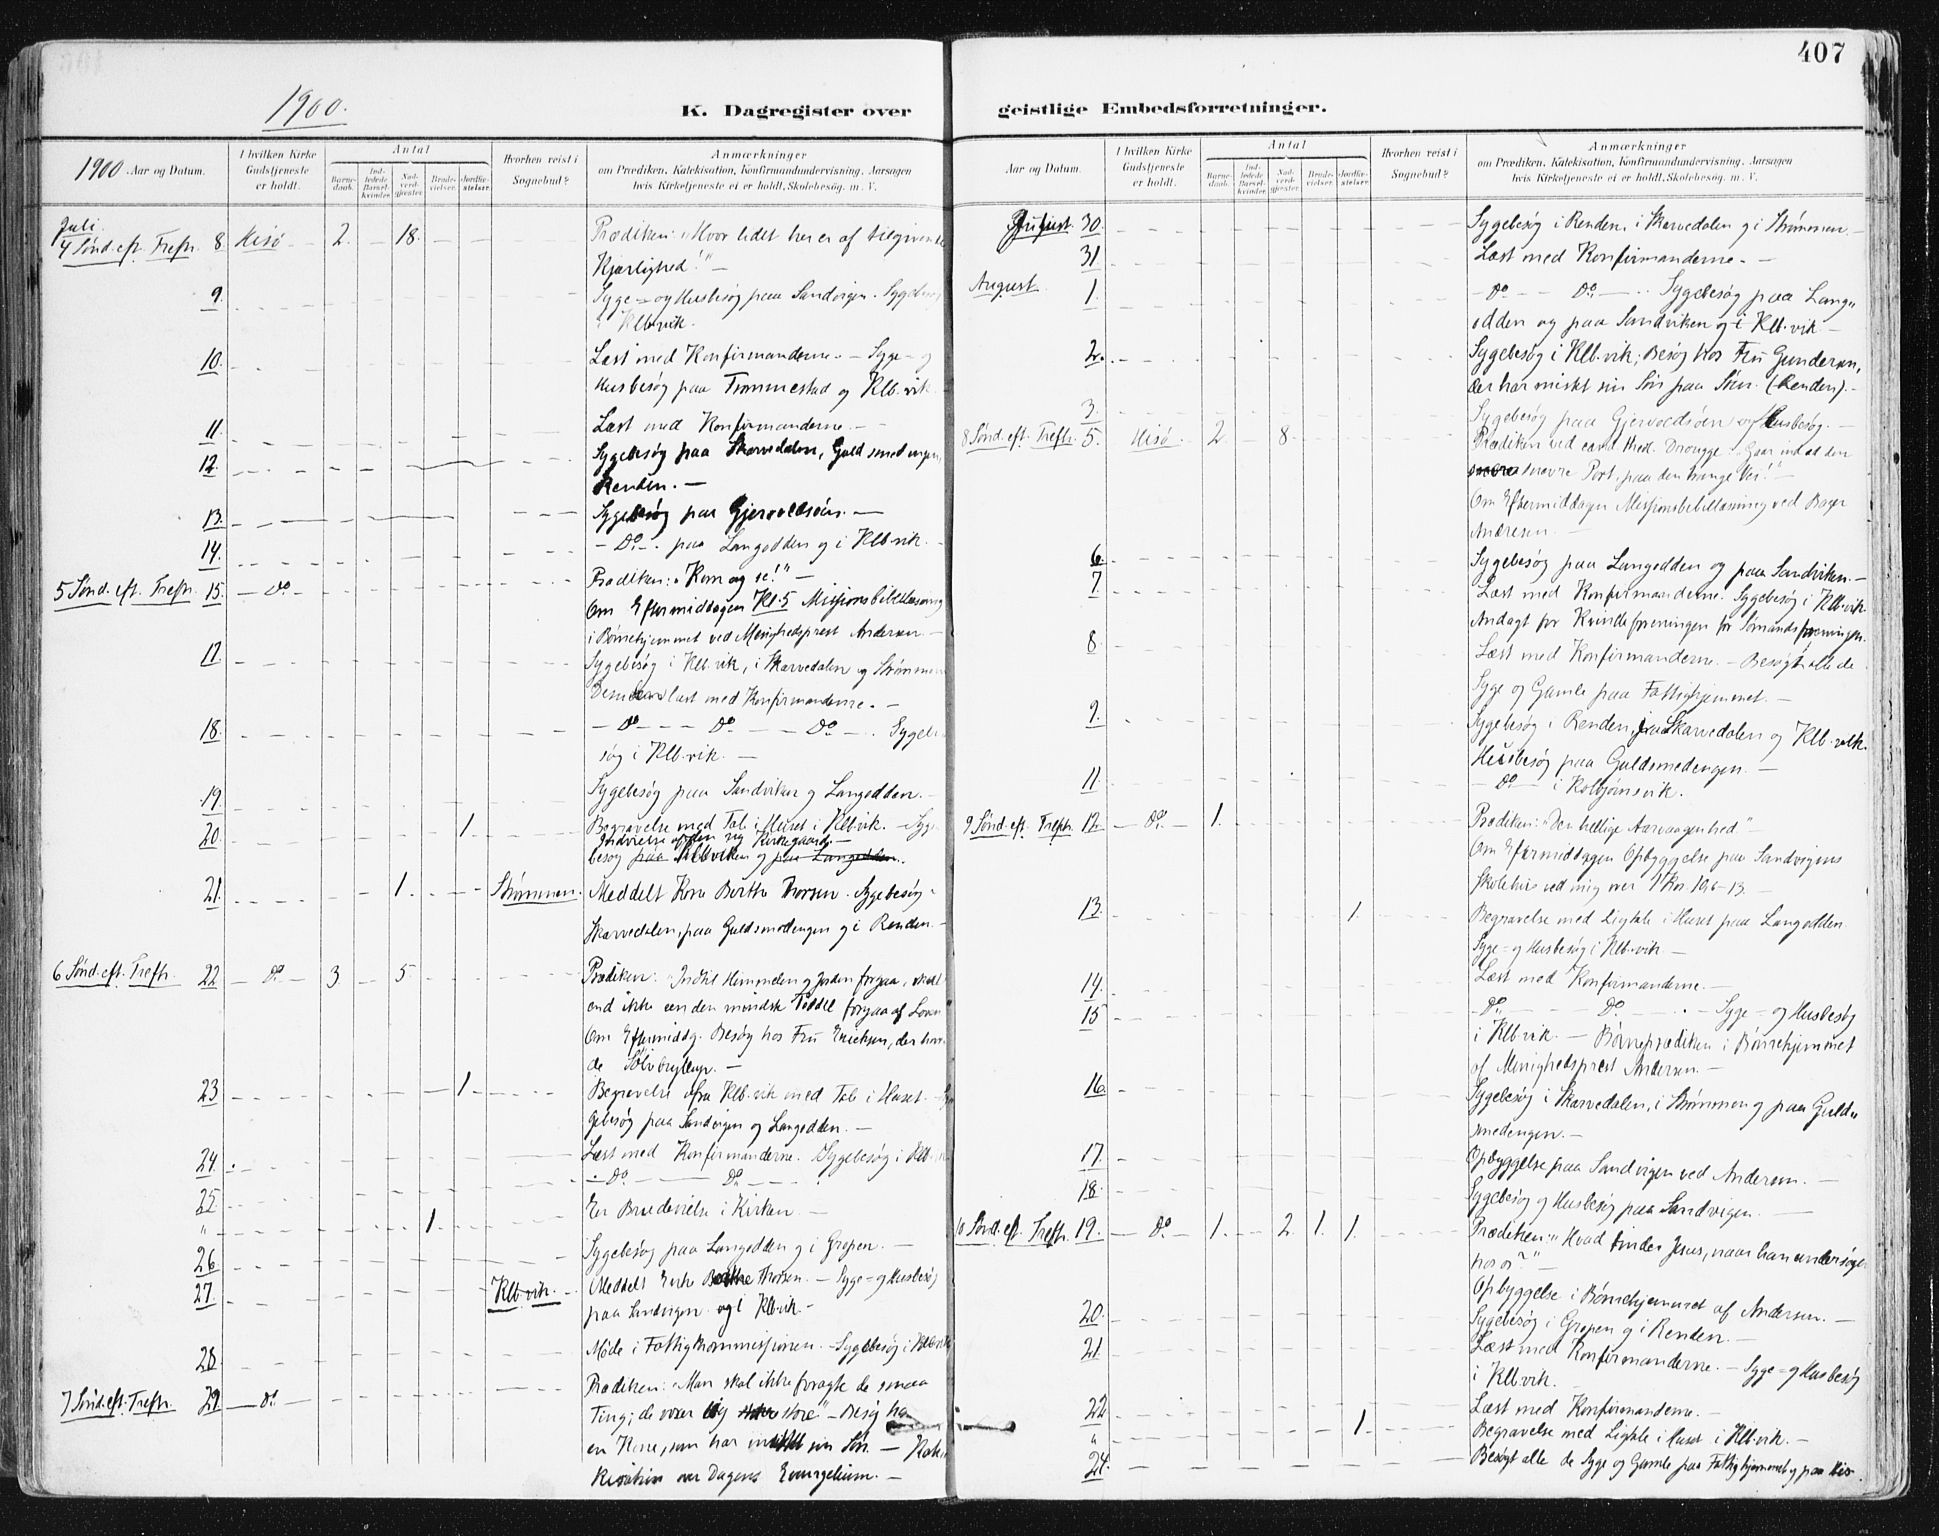 407
1900.
K. Dagregister over geistlige Embedsforretninger.
1900 Aar og Datum.
I hvilken Kirke Gudstjeneste er holdt.
Antal
Barnedaab.
Indledede Barselkvinder.
Nadverdgjester.
Brudevielser.
Jordfæstelser.
Hvorhen reist i Sognebud?
Anmærkninger
om Prædiken, Katekisation, Konfirmandundervisning, Aarsagen
hvis Kirketjeneste ei er holdt, Skolebesøg. m. V.
Juli.
4 Sønd. eft. Trefr. 8 Hisö 2. 18. Prædiken: "Hvor lidet har en af tilgivende
Kjærlighed!" —
9. Syge- og Husbesøg paa Sandvigen. Sygebesøg
i Klb.vik.
10. Læst med Konfirmanderne. — Syge- og
Husbesøg paa Trommestad og Klb.vik.
11. Læst med Konfirmanderne. —
12. Sygebesøg paa Skarvedalen, Guldsmedengen,
Renden. —
13. Sygebesøg paa Gjervoldsöen. —
14. — Do —. paa Langodden og i Klb.vik.
5 Sønd. eft. Trefr. 15. — Do — Prædiken: "Kom og se!" —
Om Eftermiddagen Kl. 5 Missionsbibellæsning
i Børnehjemmet ved Menighedsprest Andersen —
17. Sygebesøg i Klb.vik, i Skarvedalen og Strømmen
læst med Konfirmanderne. —
18. — Do — — Do — — Do —. Sygebe-
søg i Klb.vik. —
19. Sygebesøg paa Sandviken og Langodden. —
20. 1. Begravelse med Tale i Huset i Klb.vik. — Syge-
Indvielse af den ny Kirkegaard. —
besøg paa Klbviken og paa Langodden.
21. 1. Strømmen. Meddelt Kone Berthe Thorsen. Sygebesøg
Skarvedalen, paa Guldsmedengen og i Renden. —
6 Sønd. eft. Trefr. 22 — Do — 3. 5. Prædiken: "Indtil Himmelen og Jorden forgaa, skal
end ikke een den mindste Tøddel forgaa af Loven
Om Eftermiddg. Besøg hos Fru Ericksen, der hav-
de Sölvbryllup. —
23 1. Begravelse fra Klb.vik med Tale i Huset. Sy-
gebesøg paa Sandvigen og Langodden. —
24. Læst med Konfirmanderne. Sygebesøg i Klb.vik
25 — Do — — Do — —
" 1. En Brudevielse i Kirken —
26 Sygebesøg paa Langodden og i Gropen. —
27. Klb.vik. Meddelt Enke Berthe Thorsen. — Syge- og Husbesøg
paa Sandvigen og i Klb.vik —
28 Møde i Fattigkommissionen. — Sygebesøg i Klb.vik
7 Sønd. eft. Trefr. 29 — Do — Prædiken: "Man skal ikke foragte de smaa
Ting; de store" — Besøg hos
en Kone, som har mistet sin Søn. — Kate-
kisation over Dagens Evangelium. —
Aar og Datum.
I hvilken Kirke Gudstjeneste er holdt.
Antal
Barnedaab.
Indledede Barselkvinder.
Nadverdgjester.
Brudevielser.
Jordfæstelser.
Hvorhen reist i Sognebud?
Anmærkninger
om Prædiken, Katekisation, Konfirmandundervisning, Aarsagen
hvis Kirketjeneste ei er holdt, Skolebesøg. m. V.
30. Sygebesøg i Renden, i Skarvedalen og i Strømmen. —
31 Læst med Konfirmanderne. —
August 1. — Do — — Do —. Sygebesøg paa Lang-
odden og paa Sandviken og i Klb.vik —
2. Sygebesøg i Klb.vik; Besøg hos Fru Gundersen,
der har mistet sin Søn paa Söen. (Renden). —
3. Sygebesøg paa Gjervoldsöen og Husbesøg. —
8 Sønd. eft. Trefr. 5. Hisö. 2. 8. Prædiken ved cand. theol. Drougge: "Gaar ind ad den
snevre Port, paa den trange Vei!" —
Om Eftermiddagen Missionsbibellæsning ved
Andresen —
6. Sygebesøg paa Langodden og paa Sandviken. —
7. Læst med Konfirmanderne. Sygebesøg i Klb.vik
Andagt for Kvindeforeningen for Sømandsforeningen.
8. Læst med Konfirmanderne. — Besøgt alle de
Syge og Gamle paa Fattighjemmet. —
9. Sygebesøg i Renden, paa Skarvedalen og Klb.vik.
Husbesøg paa Guldsmedengen. —
11. — Do — i Kolbjørnsvik.
9 Sønd. eft. Trefr. 12. — Do — 1. Prædiken: "Den hellige Aarvaagenhed."
Om Eftermiddagen Opbyggelse paa Sandvigens
Skolehus ved mig over 1 Kor. 10, 6-13. —
13. 1. Begravelse med Ligtale i Huset paa Langodden.
Syge- og Husbesøg i Klb.vik —
14. Læst med Konfirmanderne. —
15 — Do — — Do —. Syge- og Husbesøg
i Klb.vik. — Børneprædiken i Børnehjemmet
af Menighedsprest Andersen. —
16. Sygebesøg i Skarvedalen, i Strømmen og paa Guld-
smedengen. —
17. Opbyggelse paa Sandvigen ved Andersen. —
18. Sygebesøg og Husbesøg paa Sandvigen. —
10 Sønd. eft. Trefr. 19. — Do — 1. 2. 1. 1. Prædiken: "Hvad finder Jesus, naar han undersøger
hos os?" —
Opbyggelse i Børnehjemmet af Andersen. —
20. Sygebesøg i Gropen og i Renden. —
21 Læst med Konfirmanderne. — Syge- og Husbesøg
i Klb.vik.
22 Læst med Konfirmanderne. —
" 1. Begravelse med Ligtale i Huset i Klb.vik. —
24. Besøgt alle de Syge og Gamle paa Fattighjemmet og paa